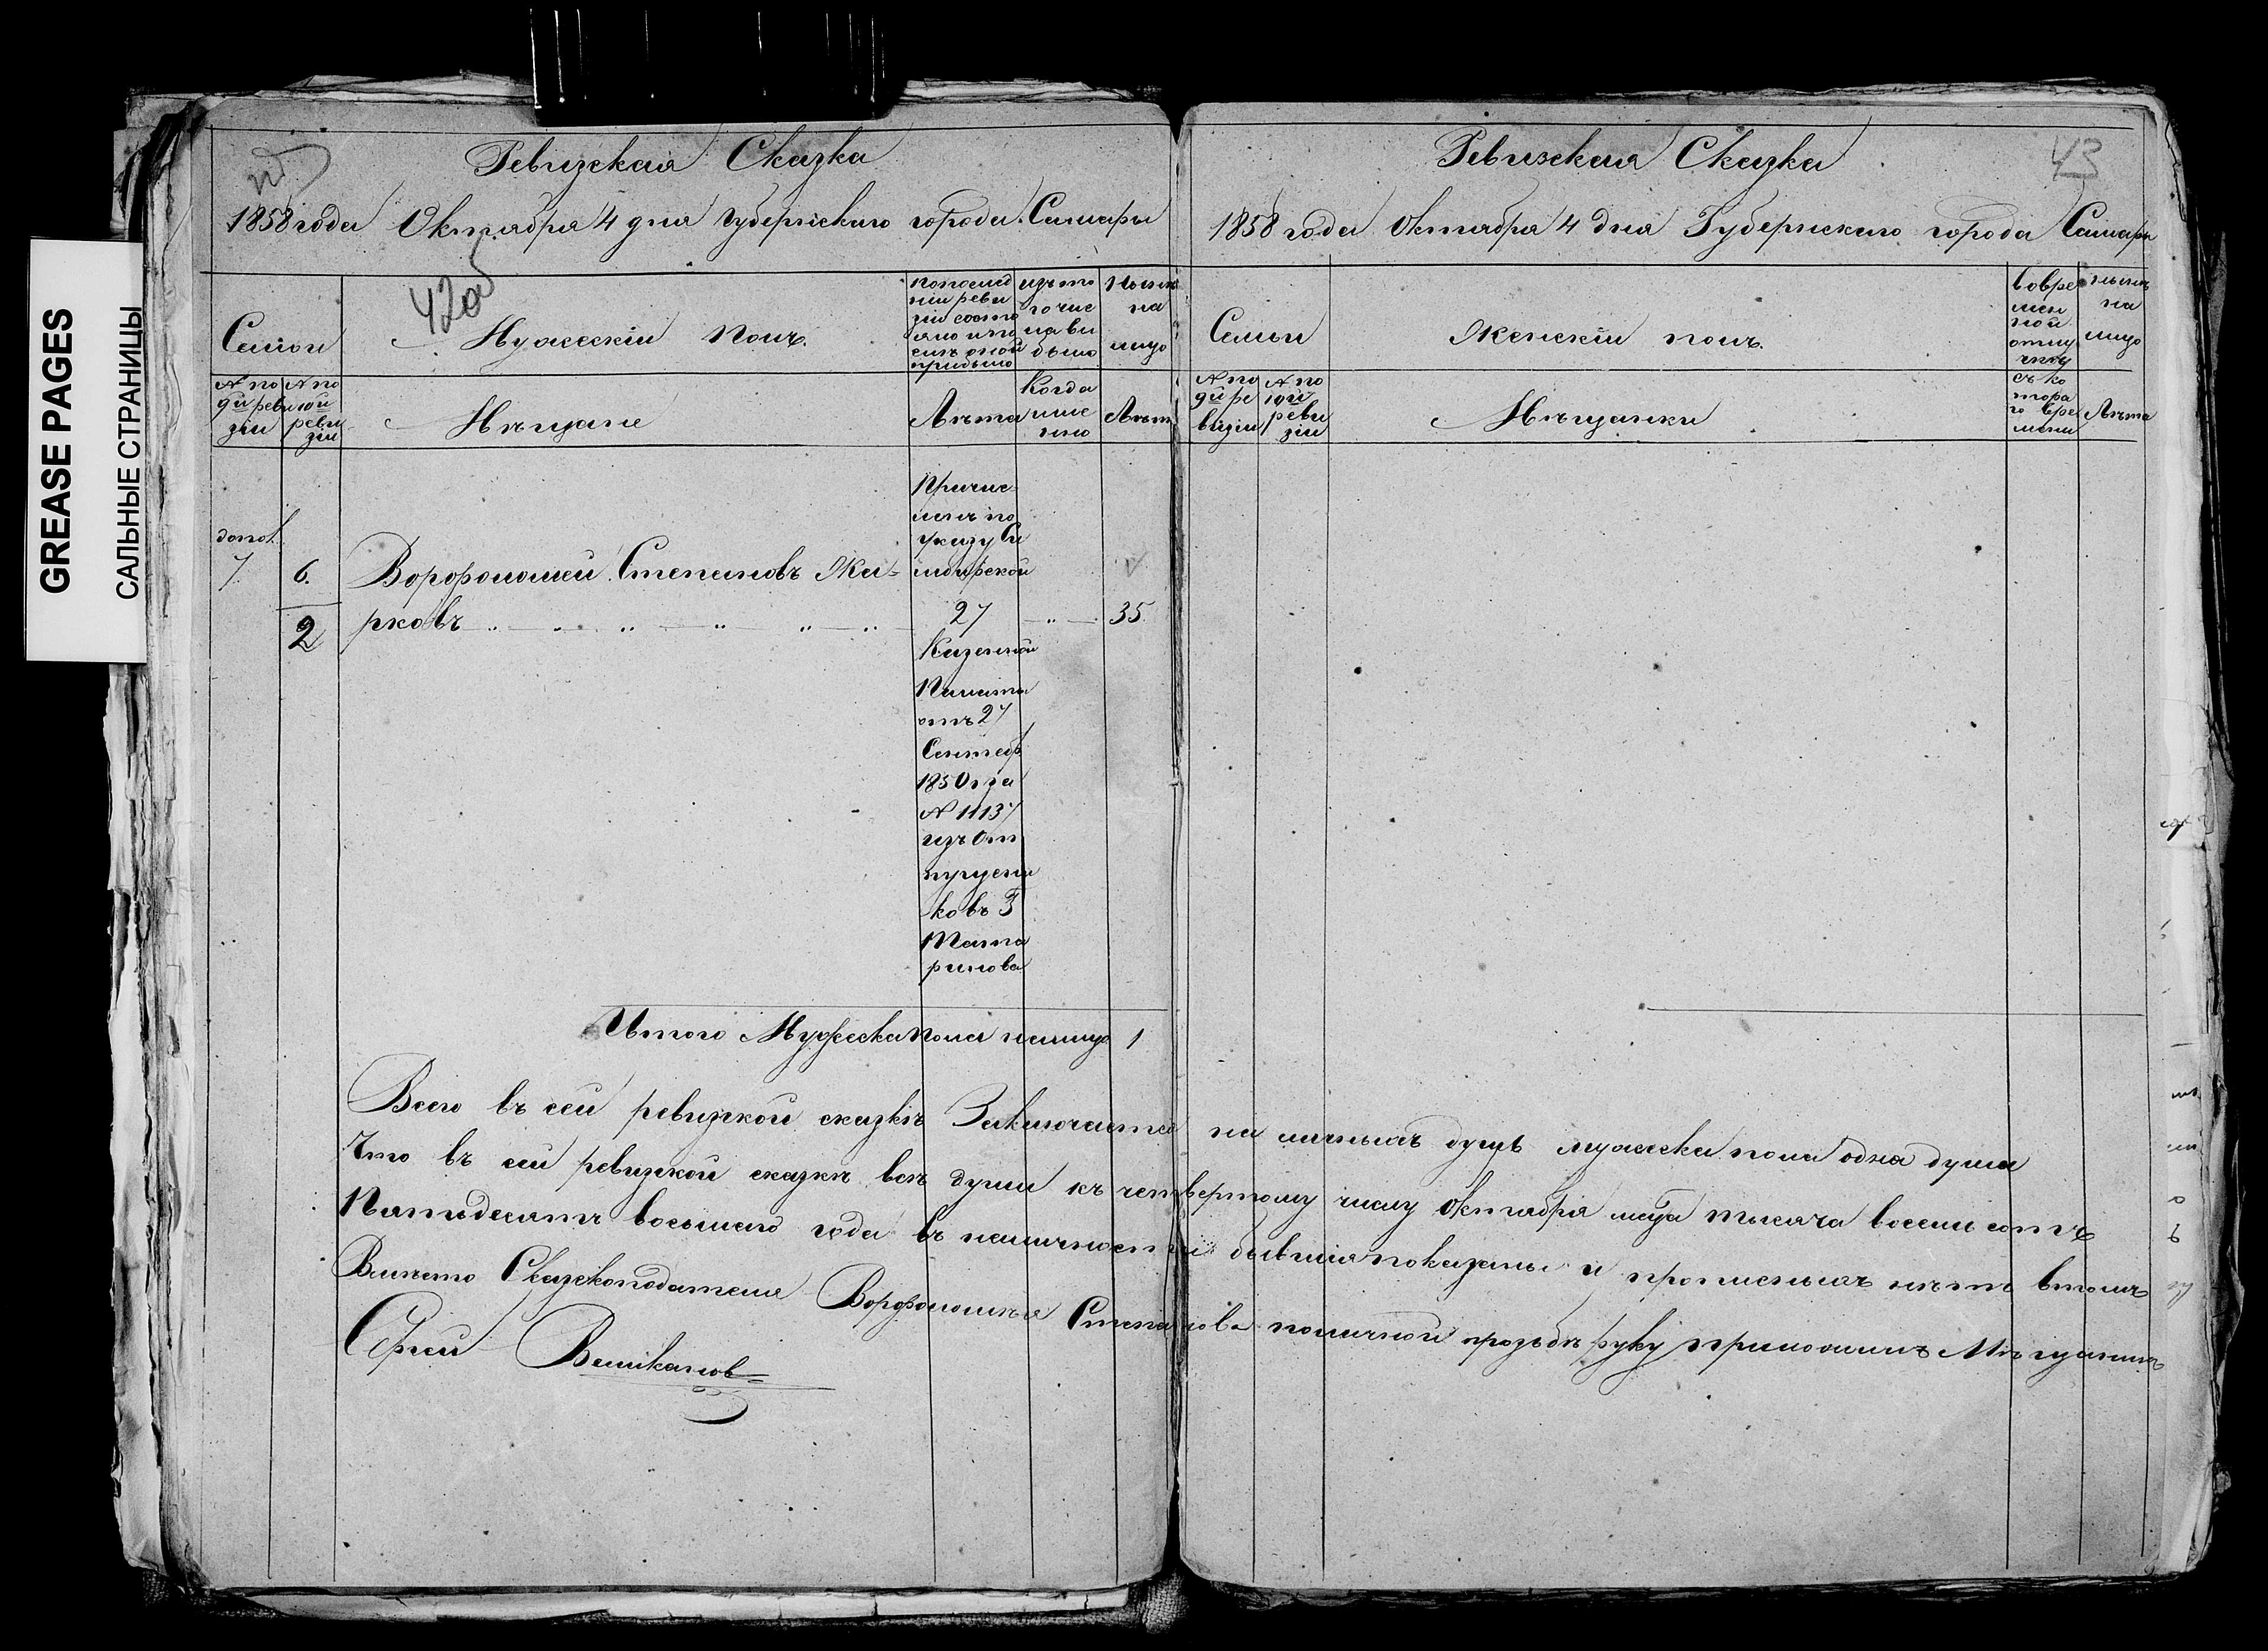 GREASE PAGES
САЛЬНЫЕ СТРАНИЦЫ
Ревизская Сказка
1858 года Октября 4 дня губернскаго города Самары
42об
Семьи
Мужескій полъ.
По послед
ніи реви
зіи состо
яло и по
слѣ оной
прибыло
изъ то
го чис
ла вы
было
Нынѣ
на
лицо
№ по
9й реви
зіи
№ по
10й
реви
зіи
Мѣщане
Лѣта
Когда
име
нно
Лѣта
допол.
7.
6.
2
Ворофоломей Степановъ Жа-
рковъ
Причис
ленъ по
указу Си
мбирской
27
35
Казенной
Палаты
отъ 27
Сентяб
1850 г за
№ 11137
изъ От
пущени
ковъ Г
Тата
ринова
Итого Мужеска пола налицо 1
Ревизская Сказка
43
1858 года Октября 4 дня Губернскаго города Самары
Семьи
Женскій полъ.
во вре
мен
ной
отлу
чкѣ
нынѣ
на
лицо
№ по
9й ре
визіи
№ по
10й
реви
зіи
Мѣщанки
съ ко
тора
го вре
мени
Лѣта
Всего въ сей ревизкой сказкѣ Заключается на личныхъ душъ мужеска пола одна душа
Что въ сей ревизкой сказкѣ всѣ души къ четвертому числу Октября мца тысяча восемь сотъ
Пятидесятъ восьмого года въ наличности бывшія показаны и прописныхъ нѣтъ втомъ
Вмѣсто Сказкоподателя Ворофоломѣя Степанова поличной прозьбѣ руку приложилъ Мѣщанинъ
Сергей Великановъ